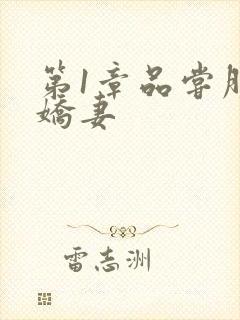 第1章品尝
娇妻
雷志洲